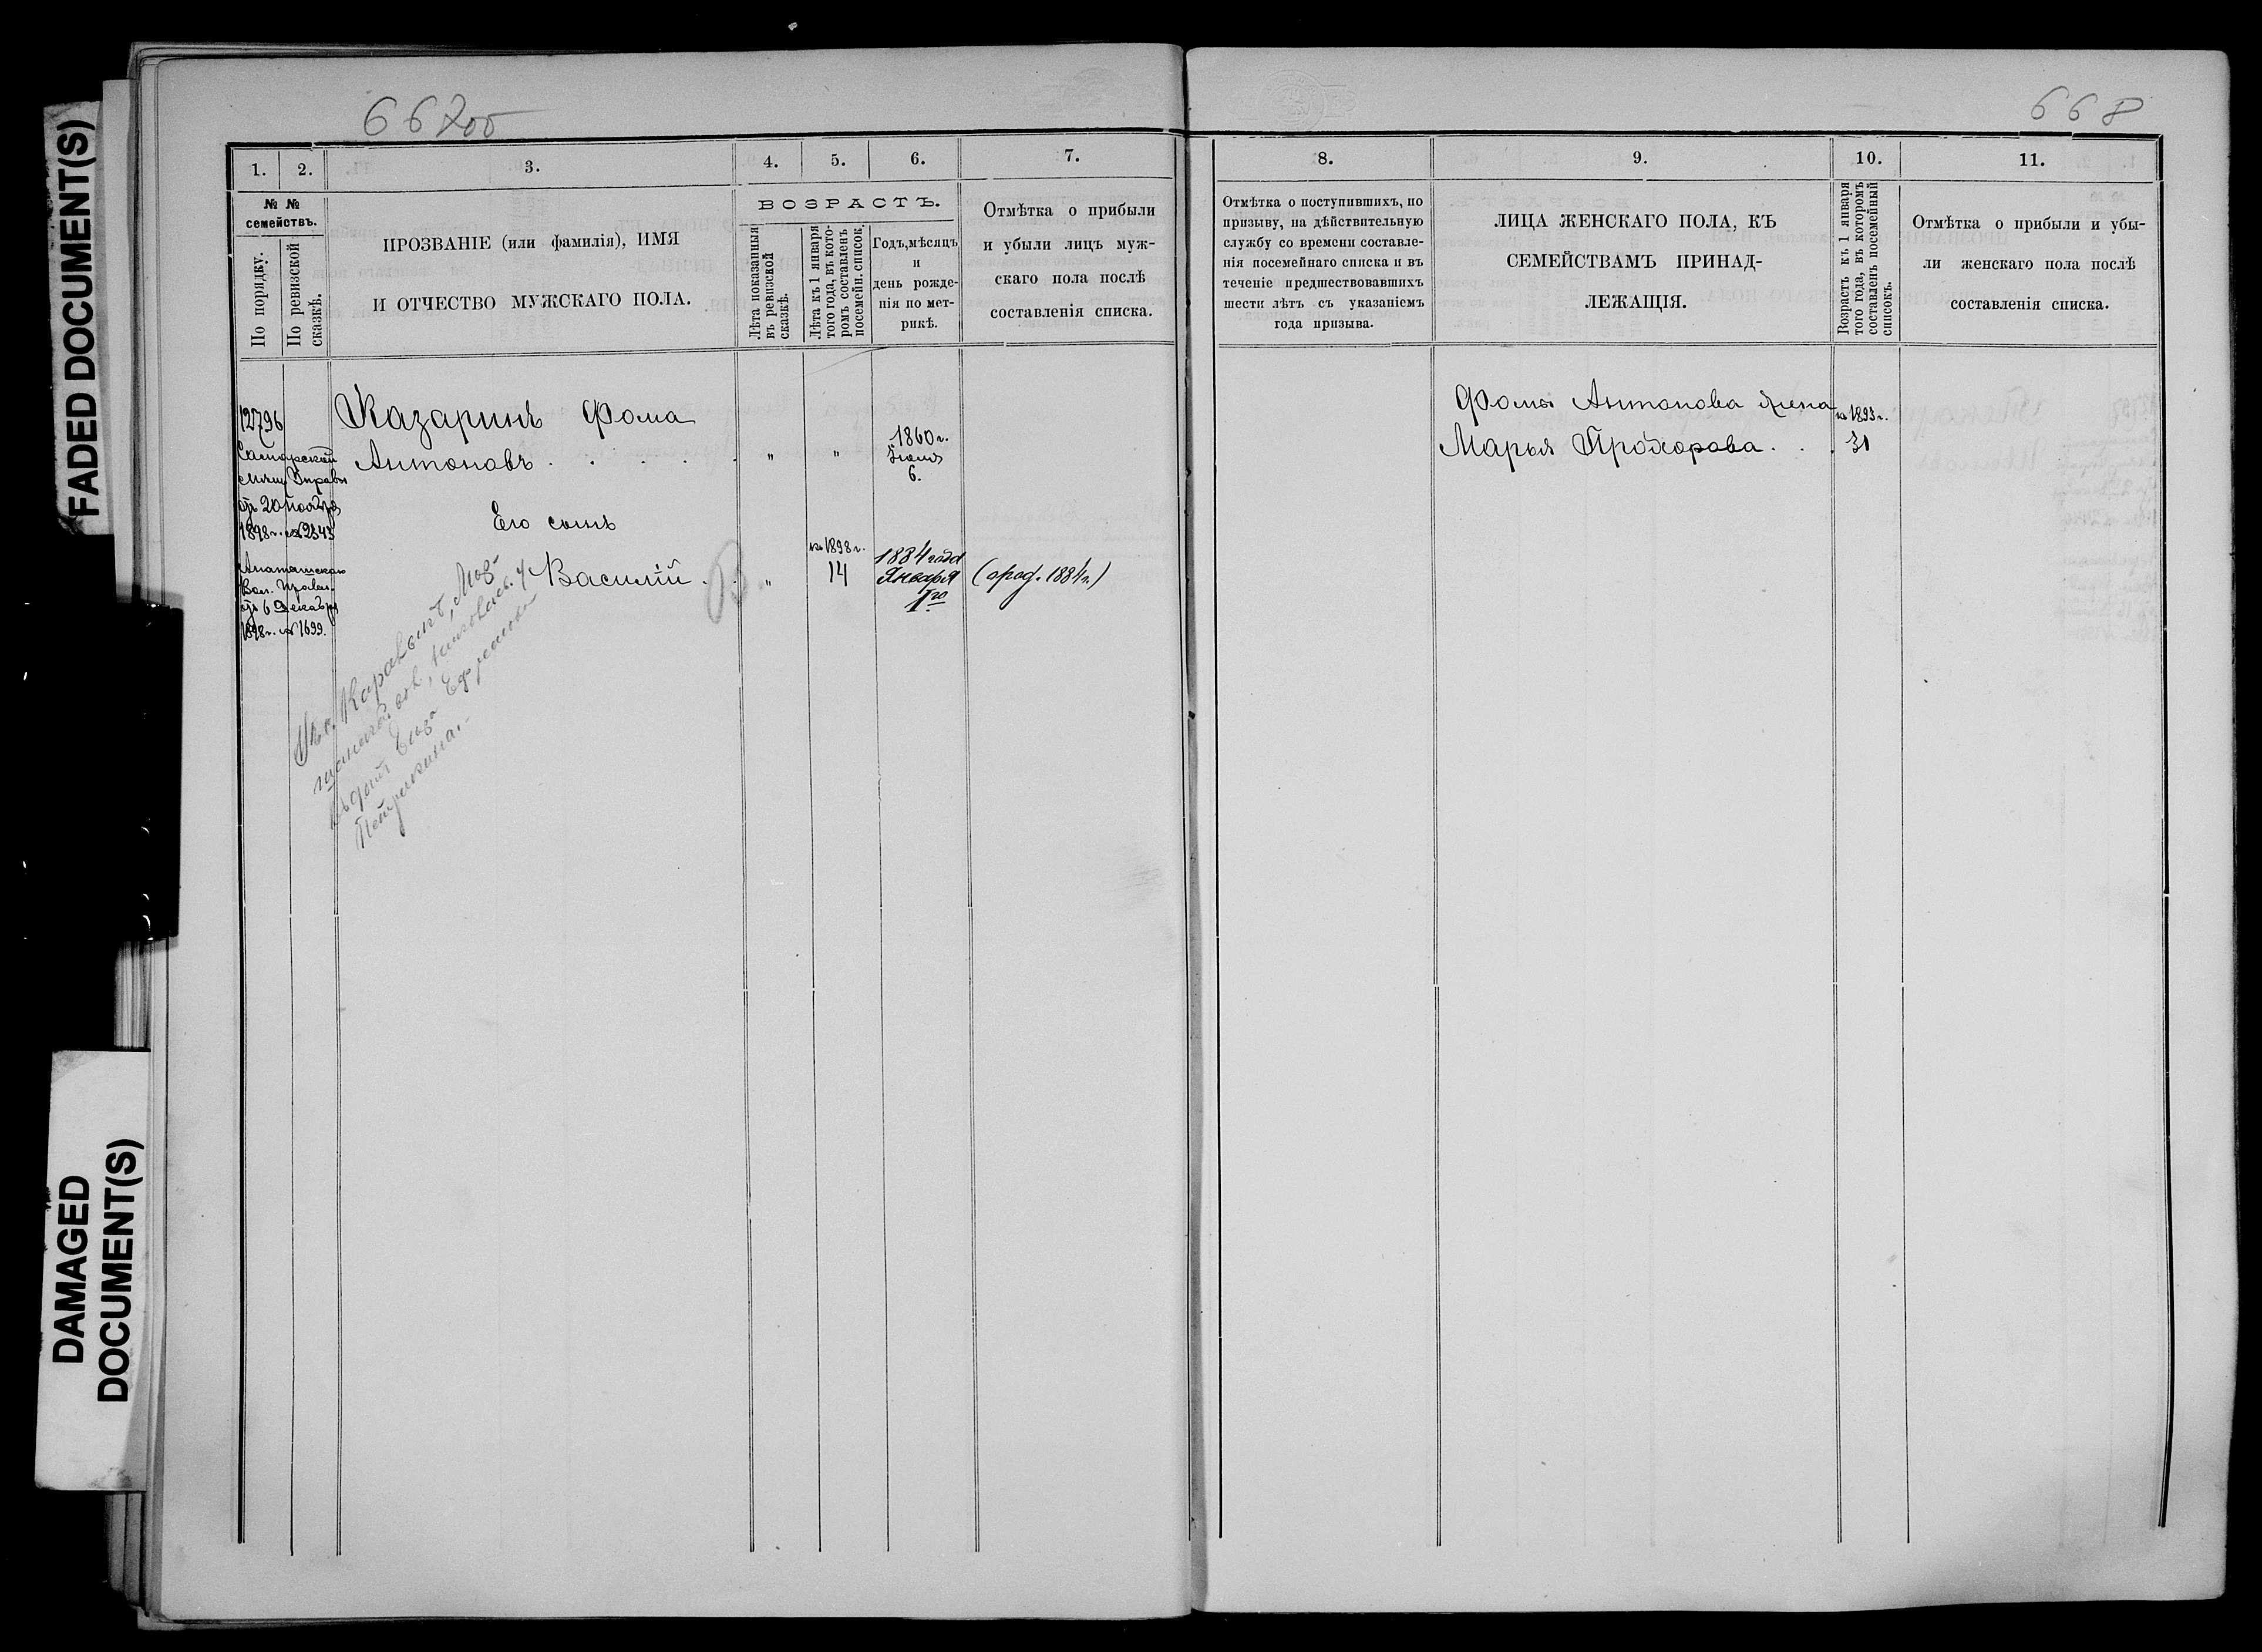 FADED DOCUMENT(S)
DAMAGED
DOCUMENT(S)
668
1.
2.
3.
4.
5.
6.
7.
№ №
семействъ.
По порядку.
По ревизской
сказкѣ.
ПРОЗВАНІЕ (или фамилія), ИМЯ
И ОТЧЕСТВО МУЖСКАГО ПОЛА.
ВОЗРАСТЪ.
Лѣта показанныя
въ ревизской
сказкѣ.
Лѣта къ 1 января
того года, въ кото-
ромъ составленъ
посемейн. списокъ.
Годъ, мѣсяцъ
и
день рожде-
нія по мет-
рикѣ.
Отмѣтка о прибыли
и убыли лицъ муж-
скаго пола послѣ
составленія списка.
12796
Казаринъ Фома
Антоновъ . . . . .
" "
1860 г.
Іюля
6.
Самарской
Мѣщ Управы
отъ 20 Ноября
1898 г. № 2343
Его сынъ
Василій . . "
на 1898 г.
14
1884 года
Января
1го
(град. 1884 г.)
Вол. Правл.
отъ 6 Декабря
1898 г. № 1699.
8.
9.
10.
11.
Отмѣтка о поступившихъ, по
призыву, на дѣйствительную
службу со времени составле-
нія посемейнаго списка и въ
теченіе предшествовавшихъ
шести лѣтъ съ указаніемъ
года призыва.
ЛИЦА ЖЕНСКАГО ПОЛА, КЪ
СЕМЕЙСТВАМЪ ПРИНАД-
ЛЕЖАЩІЯ.
Возрастъ къ 1 января
того года, въ которомъ
составленъ посемейный
списокъ.
Отмѣтка о прибыли и убы-
ли женскаго пола послѣ
составленія списка.
Фомы Антонова жена
Марья Прохорова . . .
на 1893 г.
31